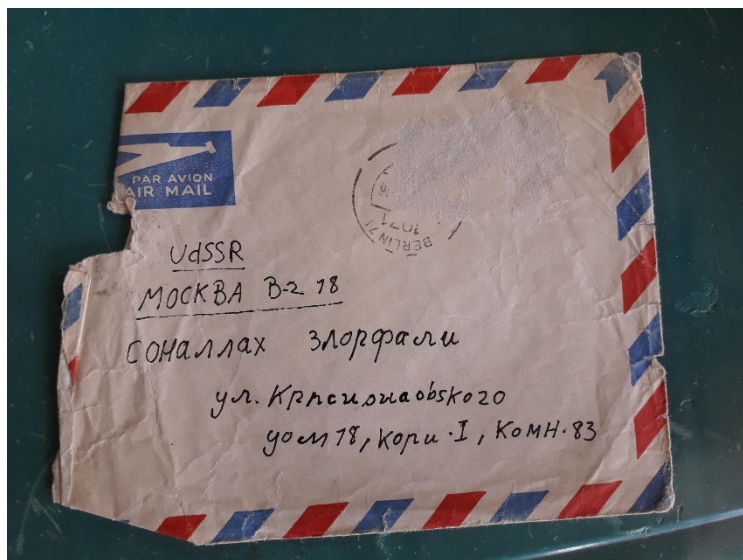 PAR AVION
AIR MAIL
BERLIN 71
1071
UdSSR
МОСКВА В-2 18
СОНАЛЛАХ ЗЛОРФАЛИ
ул.
дом 18, Корп. I, КОМН. 83